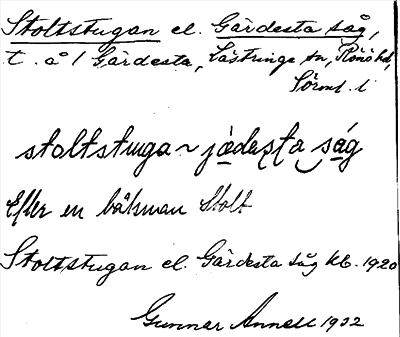 Stoltstugan el. Gärdesta såg,
t. å 1 Gärdesta, Lästringe sn, Rönö hd,
Sörml. l
stoltstuga ~ jädesta ság
Efter en båtsman Stolt
Stoltstugan el. Gärdesta såg kb. 1920
Gunnar Annell 1932